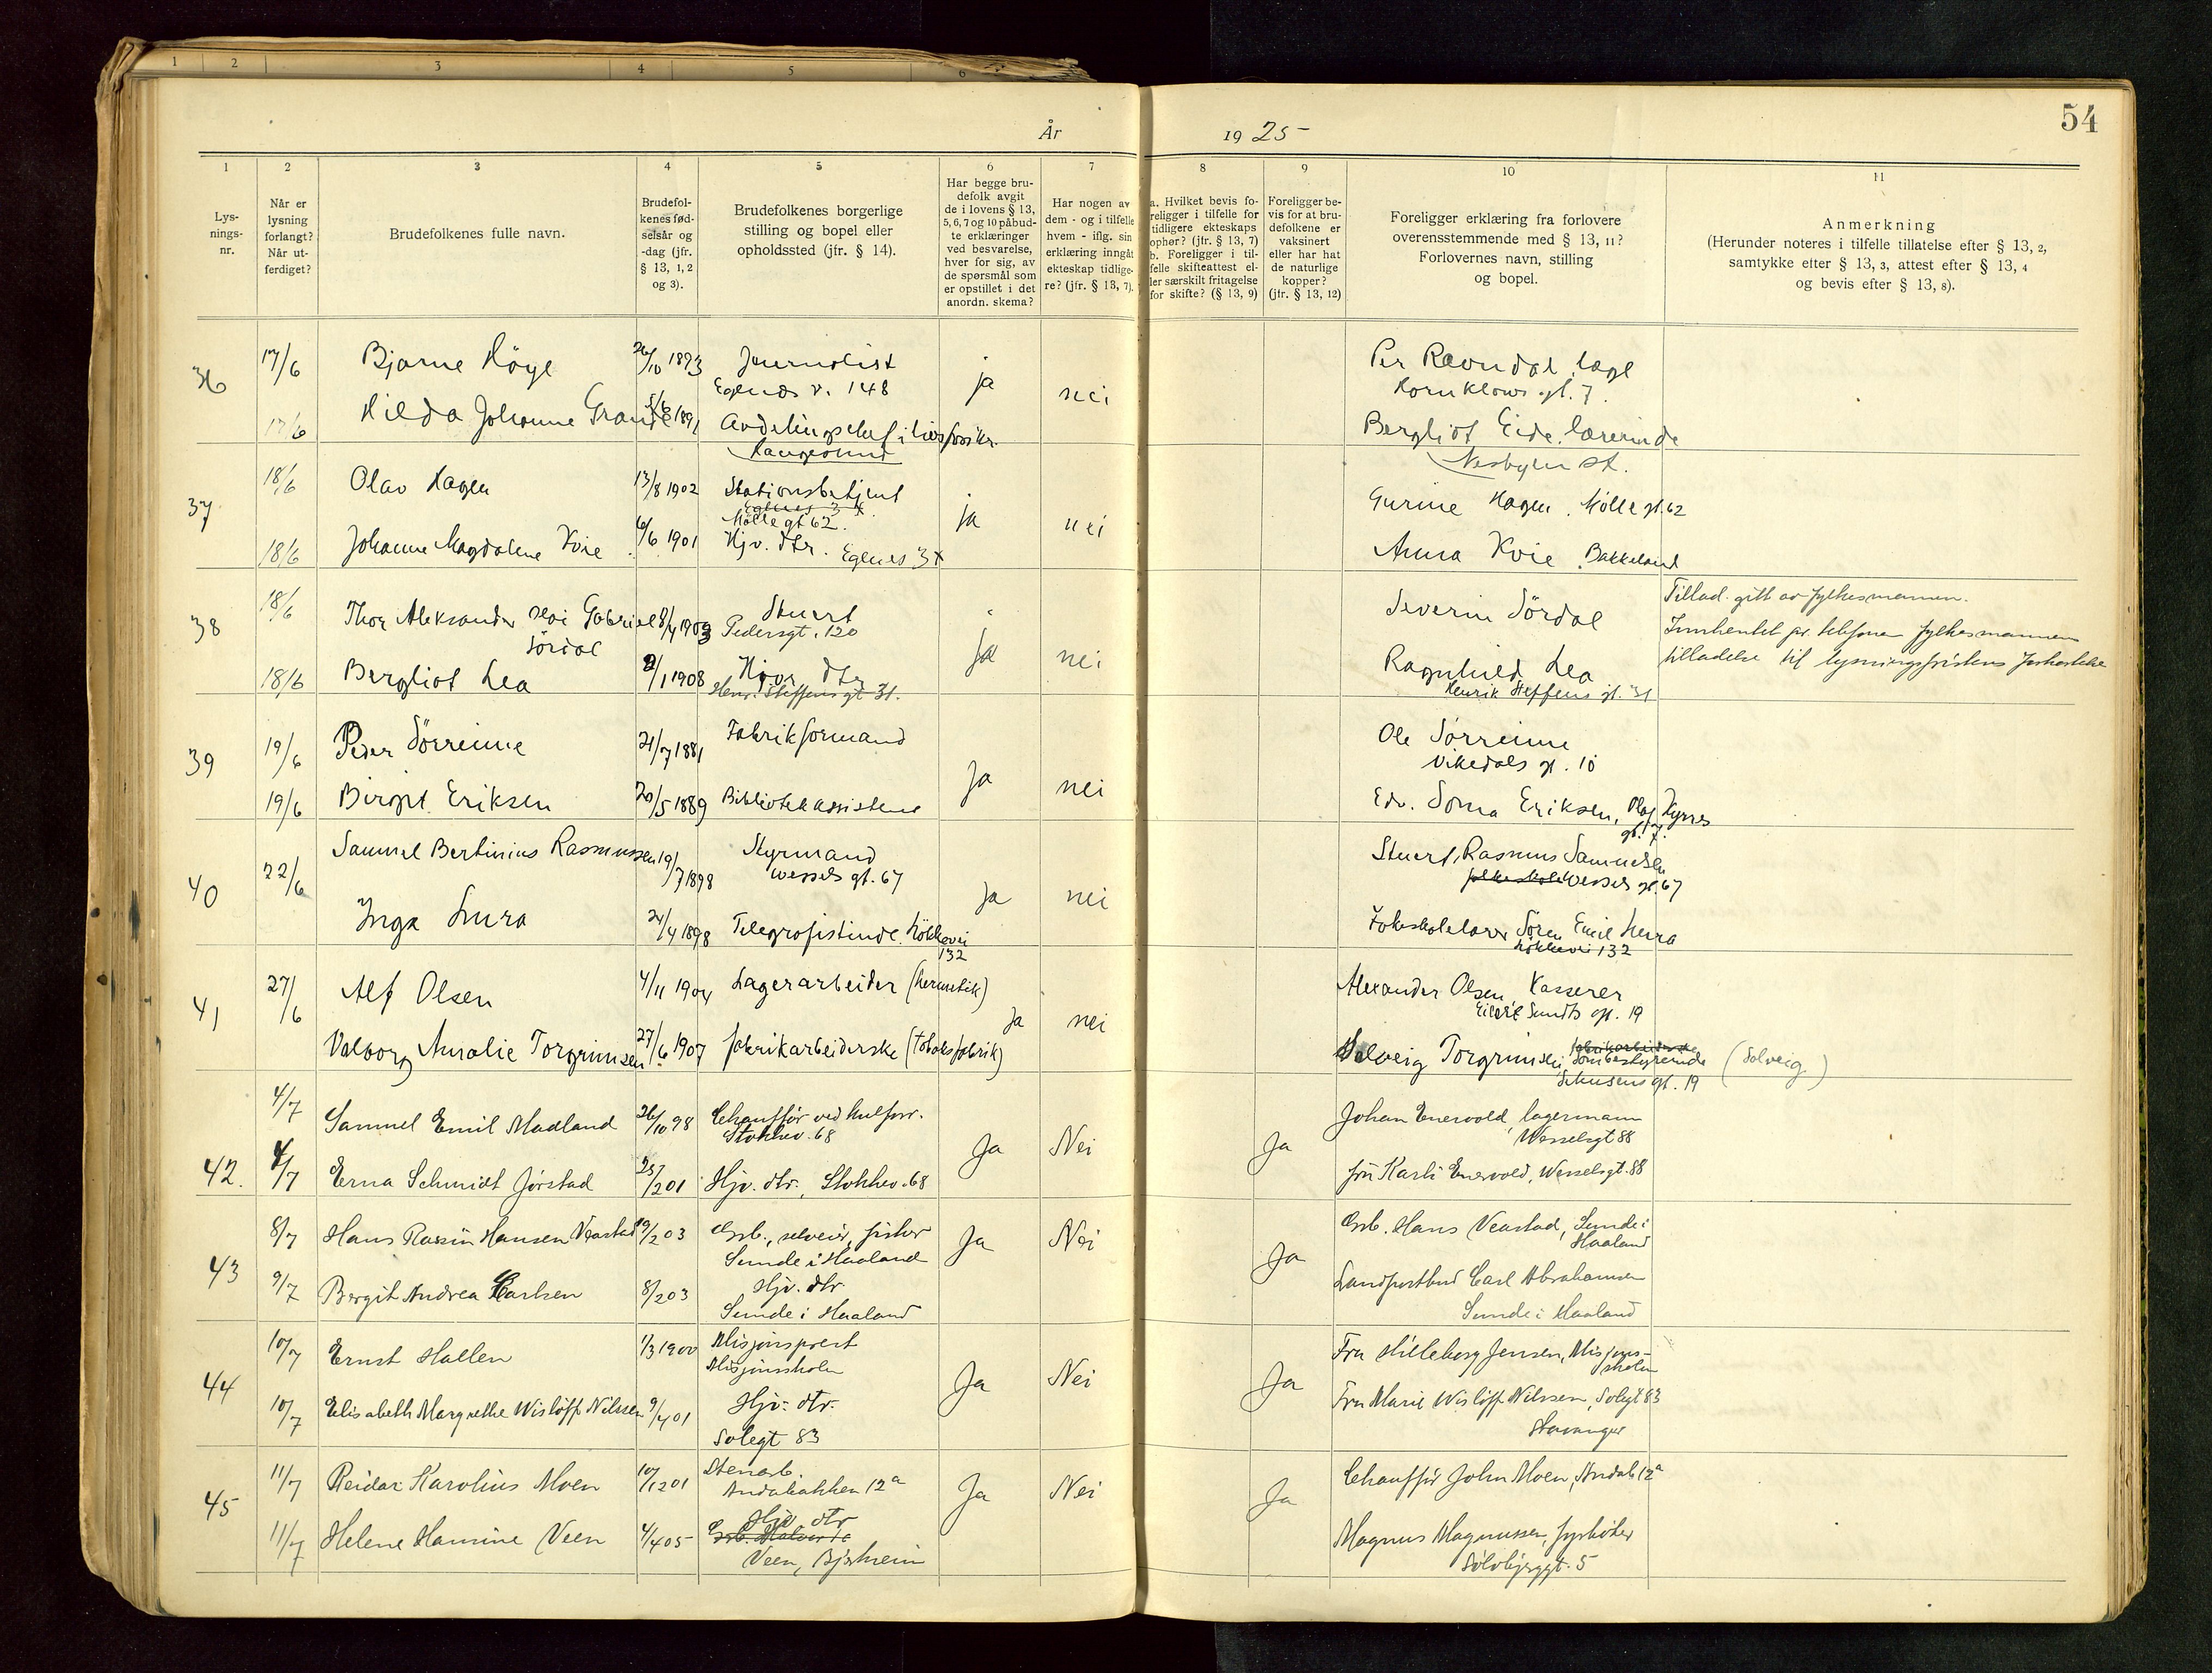 1 2 3 4 5 6
54
År 1925
1 2 3 4 5 6 7 8 9 10 11
Lys-
nings-
nr.
Når er
lysning
forlangt?
Når ut-
ferdiget?
Brudefolkenes fulle navn.
Brudefol-
kenes fød-
selsår og
-dag (jfr.
§ 13, 1, 2
og 3).
Brudefolkenes borgerlige
stilling og bopel eller
opholdssted (jfr. § 14).
Har begge bru-
defolk avgit
de i lovens § 13,
5, 6, 7 og 10 påbud-
te erklæringer
ved besvarelse,
hver for sig, av
de spørsmål som
er opstillet i det
anordn. skema?
Har nogen av
dem - og i tilfelle
hvem - iflg. sin
erklæring inngåt
ekteskap tidlige-
re? (jfr. § 13, 7).
a. Hvilket bevis fo-
religger i tilfelle for
tidligere ekteskaps
ophør? (jfr. § 13, 7)
b. Foreligger i til-
felle skifteattest el-
ler særskilt fritagelse
for skifte? (§ 13, 9)
Foreligger be-
vis for at bru-
defolkene er
vaksinert
eller har hat
de naturlige
kopper?
(jfr. § 13, 12)
Foreligger erklæring fra forlovere
overensstemmende med § 13, 11?
Forlovernes navn, stilling
og bopel.
Anmerkning
(Herunder noteres i tilfelle tillatelse efter § 13, 2,
samtykke efter § 13, 3, attest efter § 13, 4
og bevis efter § 13, 8).
36 17/6 Bjarne Höye 26/10 1893 Journalist
Eglnes v. 148
ja nei
Per Ravndal, læge
Kornklows gt. 7.
17/6 Hilda Johanne Grande 5/8 1891 Avdelingschef i livsforsikr.
Haugesund
Bergliot Eide, lærerinde
Nesbyen st.
37 18/6 Olav Hagen 13/8 1902 Stationsbetjent
Eglnes 34
Möllegt 62.
ja nei
Gurine Hagen, Mölle gt. 62
18/6 Johanne Magdalene Kvie 6/6 1901 Hjv. dtr. Eglnes 34
Anna Kvie, Bakkeland
38 18/6 Thor Aleksander Gabriel 8/4 1903
Sördal
Stuert
Pedersgt. 120
ja nei
Severin Sördal
Tillad. gitt av fylkesmannen.
Innhentet pr. telefon fylkesmannens
tilladelse til lysningsfristens forkortelse
18/6 Bergliot Lea 2/1 1908 Hjv. dtr
Henr. Steffens gt 31.
Ragnhild Lea
Henrik Steffens gt. 31
39 19/6 Peder Sörreime 21/7 1881 Fabrikformand
Ja nei
Ole Sörreime
Vikedals gt. 10
19/6 Birgit Eriksen 20/5 1889 Bibliotekassistent
Edv. Soma Eriksen, Olaf Kyrres
gt. 17.
40 22/6 Samuel Bertinius Rasmussen 19/7 1898 Styrmand
Wessels gt. 67
Ja nei
Stuert, Rasmus Samuelsen
Wessels gt. 67
Inga Lura 24/4 1898 Telegrafistinde. Lökkevei
132
Folkeskolelærer Sören Emil Lura
Lökkevei 132
41 27/6 Alf Olsen 4/11 1904 Lagerarbeider (hermetik)
Ja nei
Alexander Olsen, Kasserer
Eilert Sundts gt. 19
Valborg Amalie Torgrimsen 27/6 1907 fabrikarbeiderske (tobaksfabrik)
fabrikarbeiderske
Solveig Torgrimsen, (Solveig)
gt. 19
42. 4/7 Samuel Emil Madland 26/10 98 Chauffør ved kulforr.
Stokkev. 68
Ja Nei Ja
Johan Enevold, lagermann
Wesselsgt 88
4/7 Erna Schmidt Jørstad 25/2 01 Hjv. dtr., Stokkev. 68
fru Karli Enevold, Wesselsgt. 88
43 8/7 Hans Rasin Hansen Veastad 19/2 03 Grb., selveier, fisker
Sunde i Haaland
Ja Nei Ja
Grb. Hans Veastad, Sunde i
Haaland
9/7 Bergit Andrea Carlsen 8/2 03 Hjv. dtr
Sunde i Haaland
Landpostbud Carl Abrahamsen
Sunde i Haaland
44 10/7 Ernst Hallen 1/3 1900 Misjonsprest
Misjonsskolen
Ja Nei Ja
Fru Hilleborg Jensen, Misjons-
skolen
10/7 Elisabeth Margrethe Wisløff Nilssen 9/4 01 Hjv. dtr.
Solegt 83
Fru Marie Wisløff Nilssen, Solegt 83
Stavanger
45 11/7 Reidar Karolius Moen 10/12 01 Stenarb.
Andabakken 12a
Ja Nei Ja
Chauffør John Moen, Andab. 12a
11/7 Helene Hamine Veen 4/4 05 Hjv. dtr
Veen, Bjørheim
Magnus Magnussen, fyrbøter
Sølvbjerggt. 5